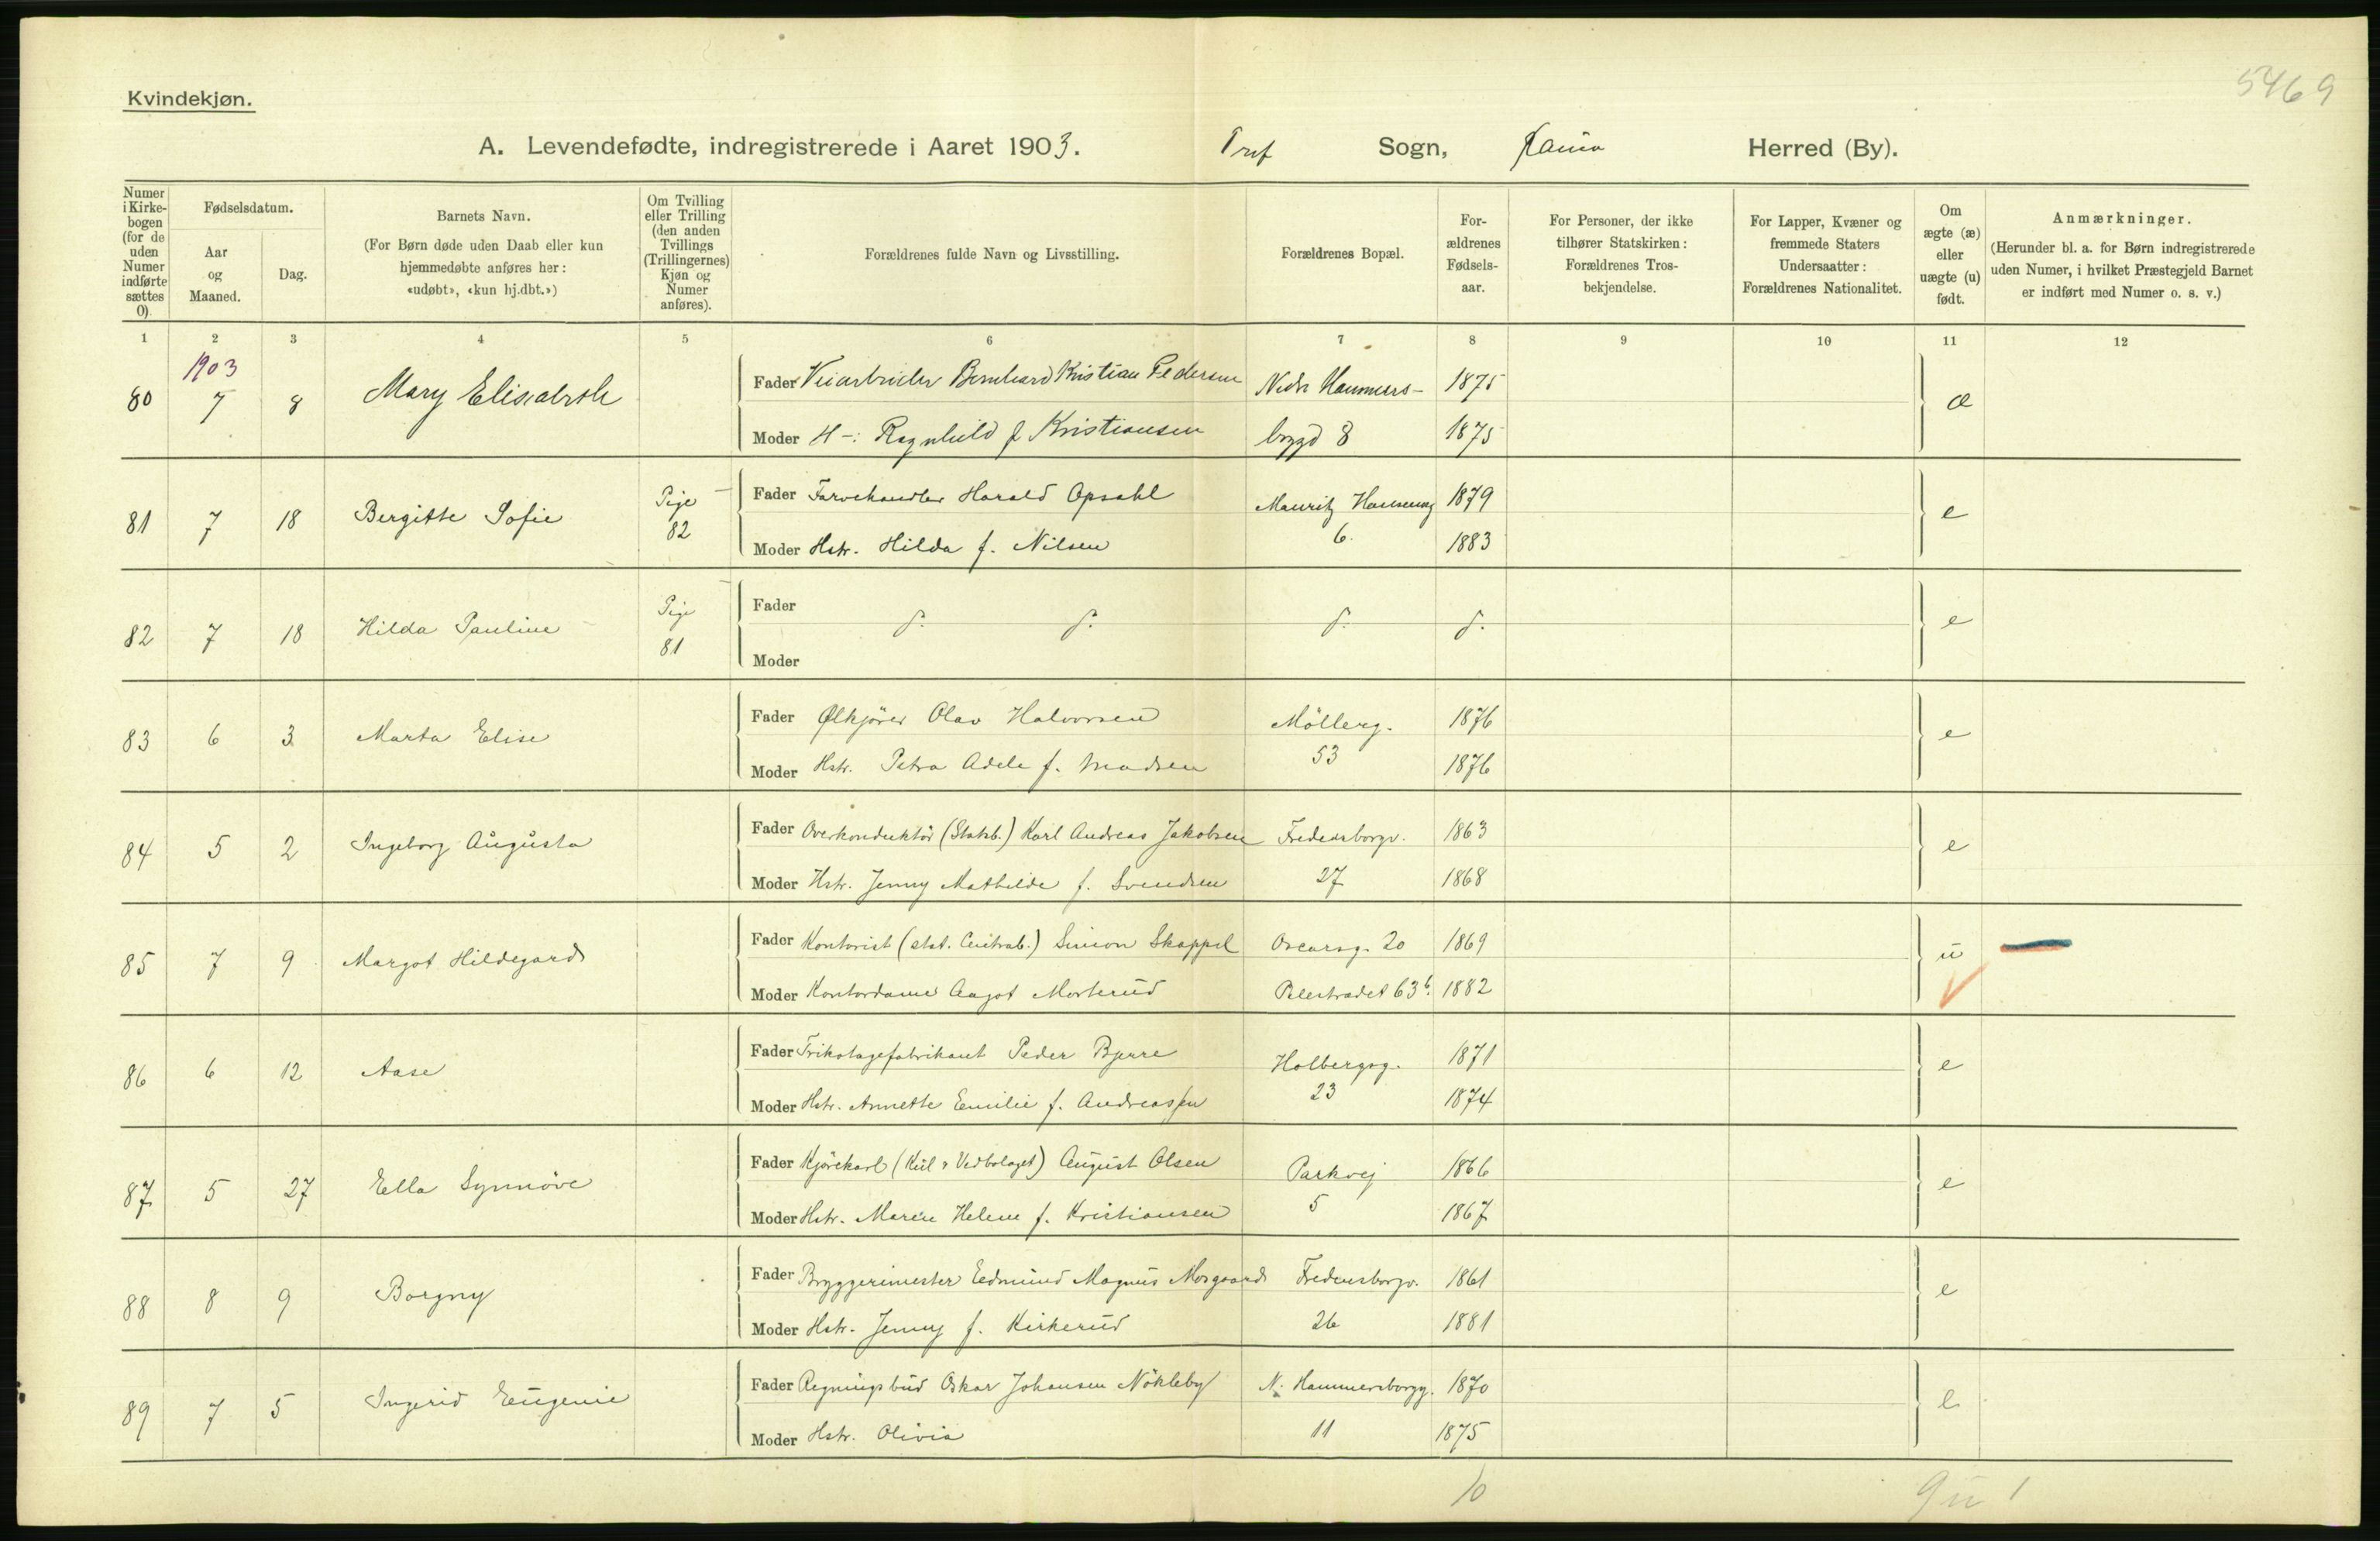 5469
Kvindekjøn.
A. Levendefødte, indregistrerede i Aaret 1903. Tref Sogn, Kania Herred (By).
Numer i Kirkebogen (for de uden Numer indførte sættes 0).
Fødselsdatum.
Aar og Maaned.
Dag.
Barnets Navn.
(For Børn døde uden Daab eller kun hjemmedøbte anføres her: «udøbt», «kun hj.dbt.»)
Om Tvilling eller Trilling (den anden Tvillings (Trillingernes) Kjøn og Numer anføres).
Forældrenes fulde Navn og Livsstilling.
Forældrenes Bopæl.
Forældrenes Fødselsaar.
For Personer, der ikke tilhører Statskirken: Forældrenes Trosbekjendelse.
For Lapper, Kvæner og fremmede Staters Undersaatter: Forældrenes Nationalitet.
Om ægte (æ) eller uægte (u) født.
Anmærkninger.
(Herunder bl. a. for Børn indregistrerede uden Numer, i hvilket Præstegjeld Barnet er indført med Numer o. s. v.)
1 2 3 4 5 6 7 8 9 10 11 12
1903
80 7 8 Mary Elisabeth Fader Veiarbeider Bernhard Kristian Pedersen Nedr Hammers- 1875 æ
Moder H-: Ragnhild f Kristiansen bgyd 8 1875
81 7 18 Bergitte Sofie Pige 82 Fader Farvehandler Harald Opsahl Mauritz Hansensg 1879 e
Moder Hstr. Hilda f. Nilsen 6. 1883
82 7 18 Hilda Pauline Pige 81 Fader d. d. d. d. e
Moder
83 6 3 Marta Elise Fader Ølkjörer Olav Halvorsen Möllerg. 1876 e
Moder Hstr. Petra Adele f. Madsen 53 1876
84 5 2 Ingeborg Augusta Fader Overkonduktör (Statsb.) Karl Andreas Jakobsen Fredensborgv. 1863 e
Moder Hstr. Jenny Mathilde f. Svendsen 27 1868
85 7 9 Margot Hildegard Fader Kontorist (stat. Centralb.) Simon Skappel Oscarsg. 20 1869 u
Moder Kontordame Aagot Morterud Pilestrædet 63b. 1882
86 6 12 Aase Fader Trikotagefabrikant Peder Bjerre Holbergsg. 1871 e
Moder Hstr. Annette Emilie f. Andreassen 23 1874
87 5 27 Ella Synnöve Fader Kjörekarl (Kul & Vedbolaget) August Olsen Parkvej 1866 e
Moder Hstr. Maren Helene f. Kristiansen 5 1867
88 8 9 Borgny Fader Bryggerimester Edmund Magnus Morgaard Fredensborgv. 1861 e
Moder Hstr. Jenny f. Kirkerud 26 1881
89 7 5 Ingerid Eugenie Fader Regningsbud Oskar Johansen Nökleby N. Hammersborgg. 1870 e
Moder Hstr. Olivia 11 1875
10 9 u 1